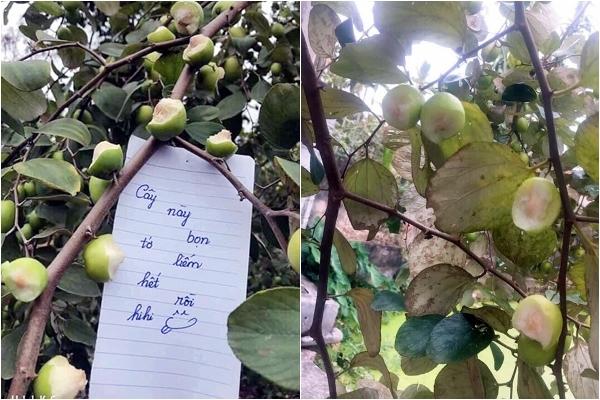 Cây này
bọn
tớ
liếm
hết
rồi
hihi